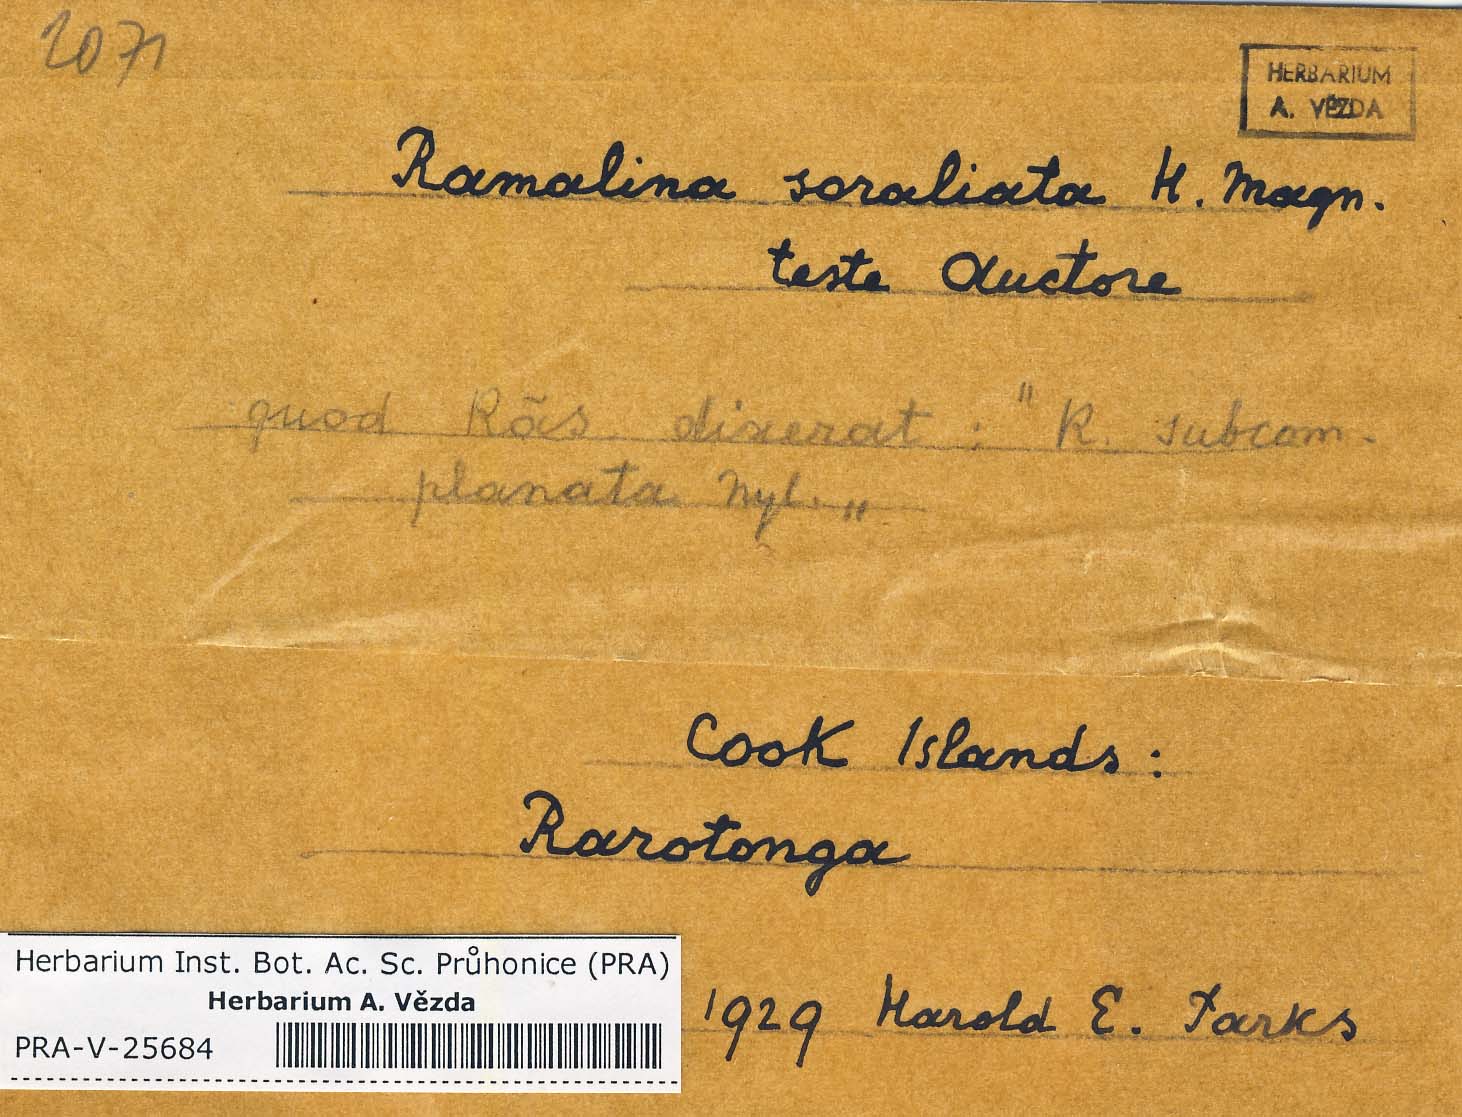 2071
HERBARIUM
A. VĚZDA
Ramalina soraliata H. Magn.
teste Auctore
quod Räs. dixerat : "R. subcom-
planata Nyl."
Cook Islands :
Rarotonga
1929 Harold E. Parks
Herbarium Inst. Bot. Ac. Sc. Průhonice (PRA)
Herbarium A. Vězda
PRA-V-25684